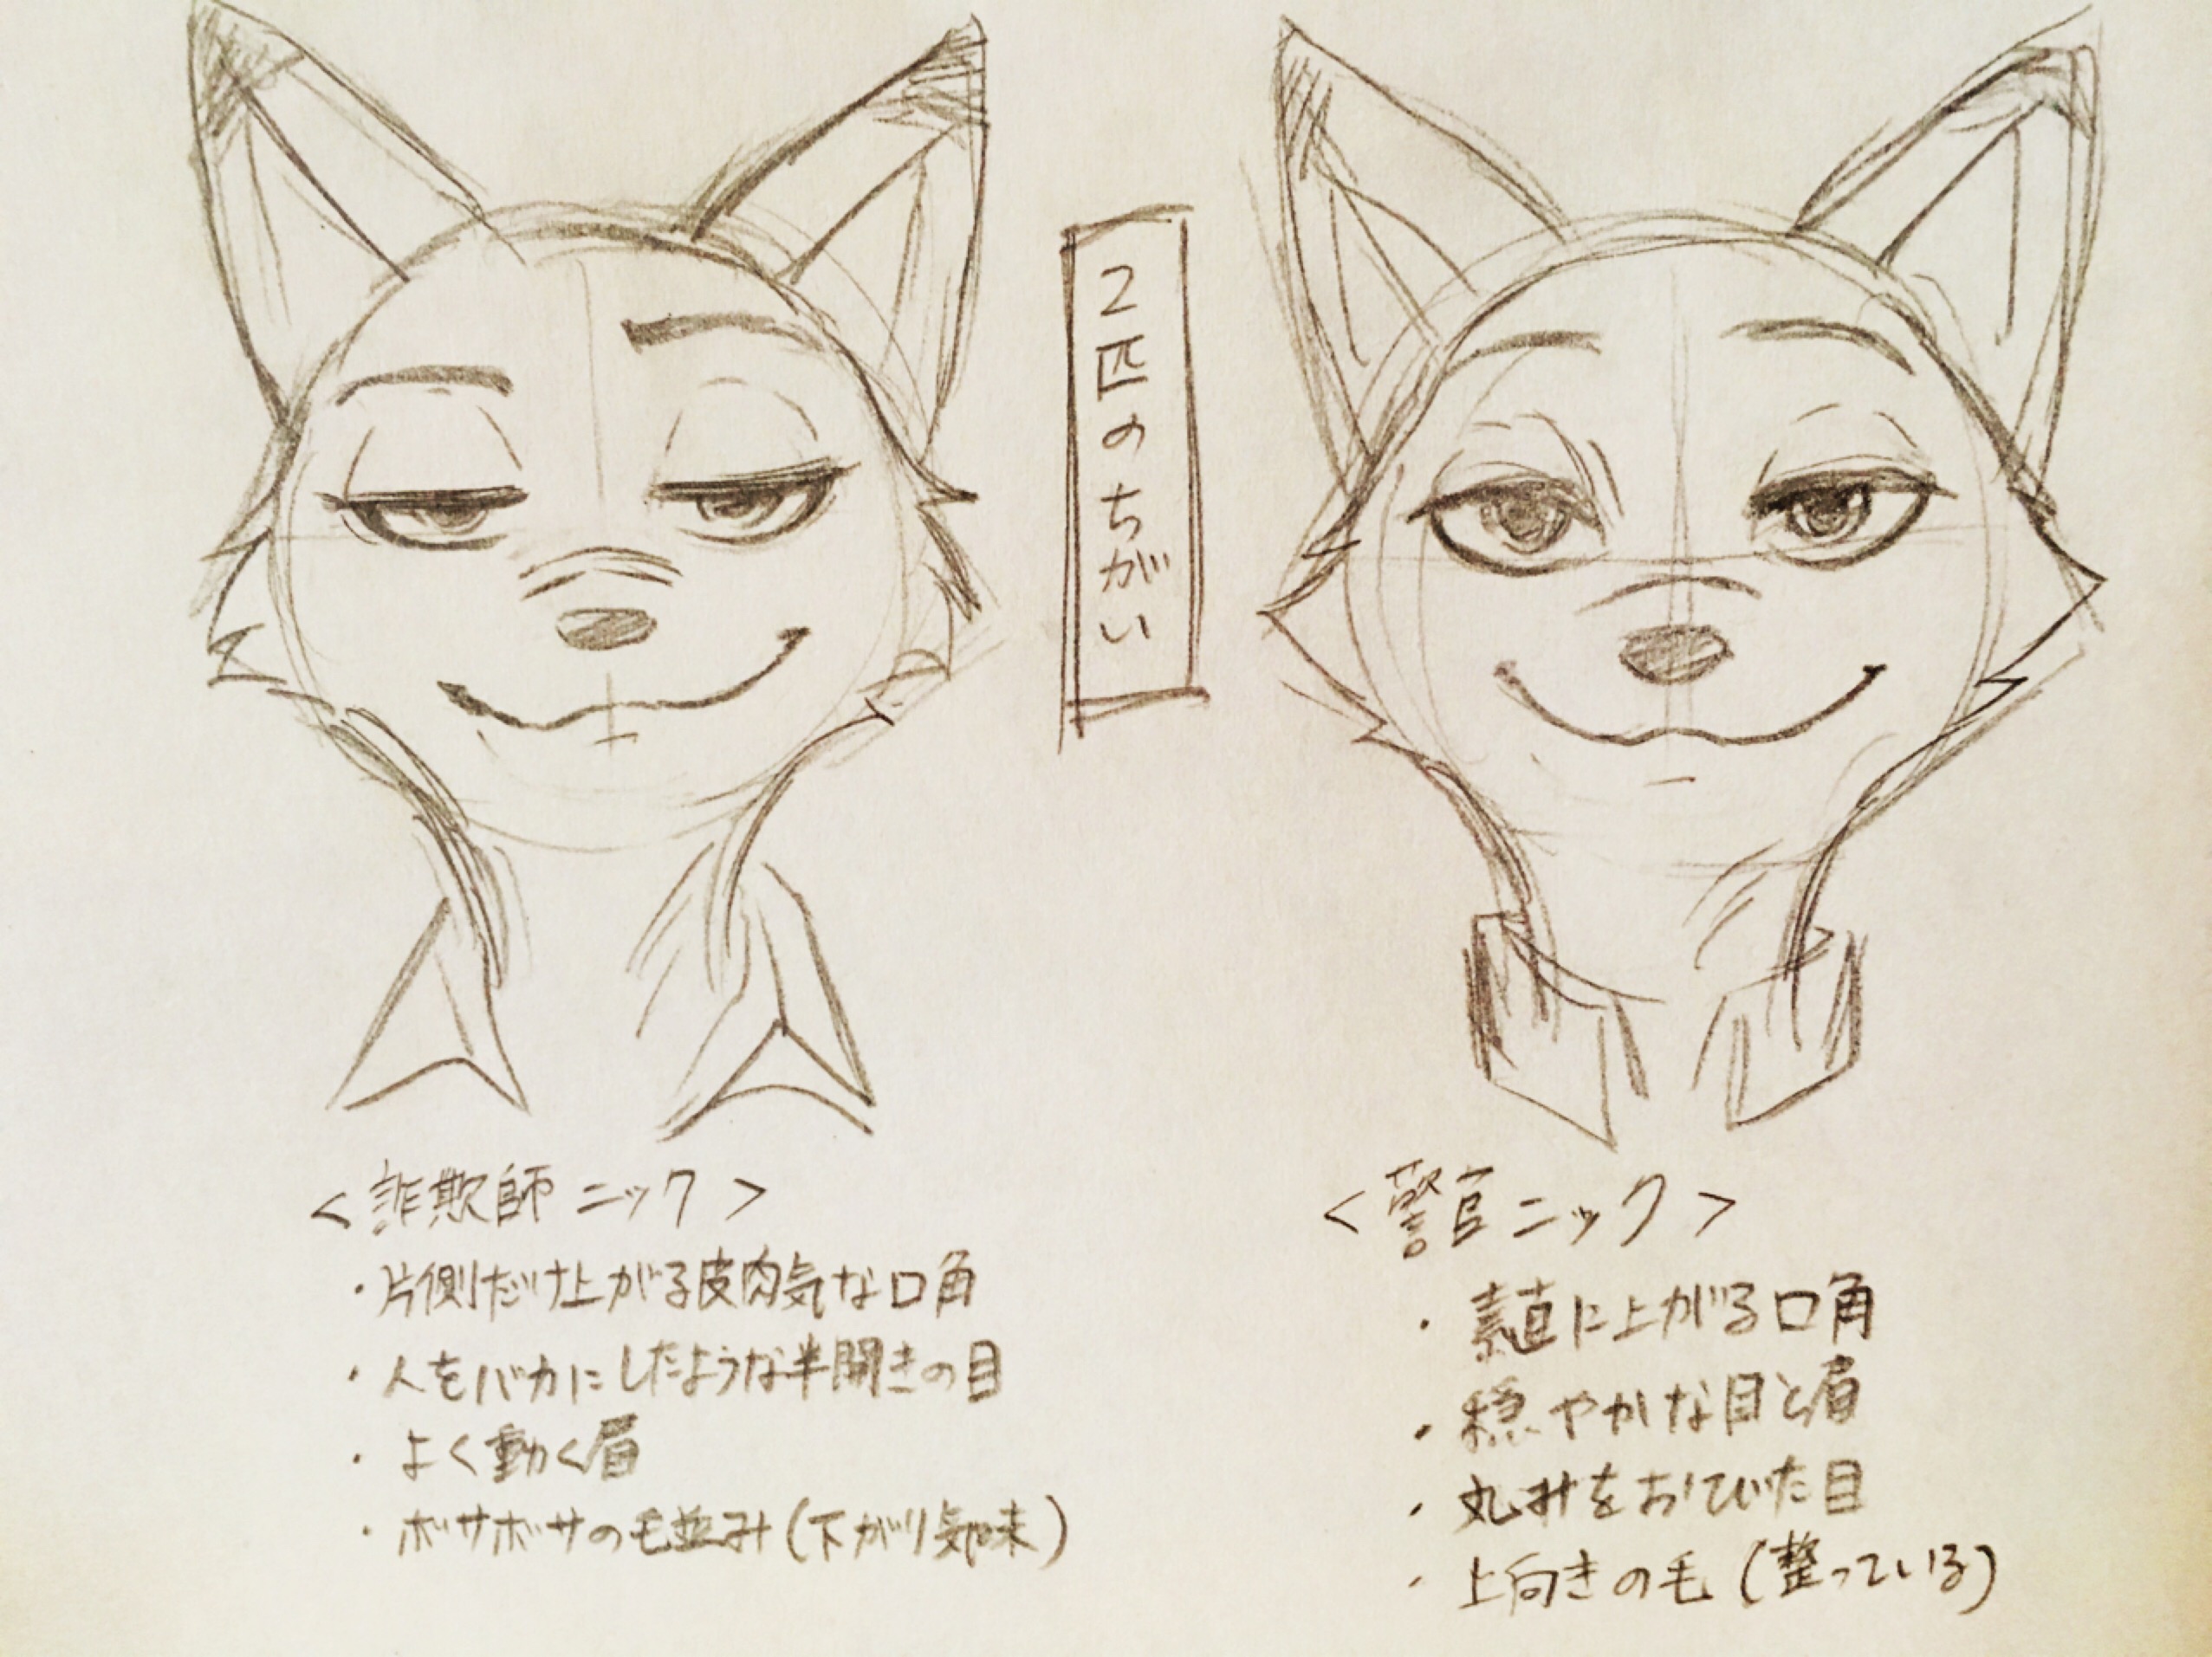 2匹のちがい
<詐欺師ニック>
・片側だけ上がる皮肉気な口角
・人をバカにしたような半開きの目
・よく動く眉
・ボサボサの毛並み(下がり気味)
<警官ニック>
・素直に上がる口角
・穏やかな目と眉
・丸みをおびた目
・上向きの毛(整っている)